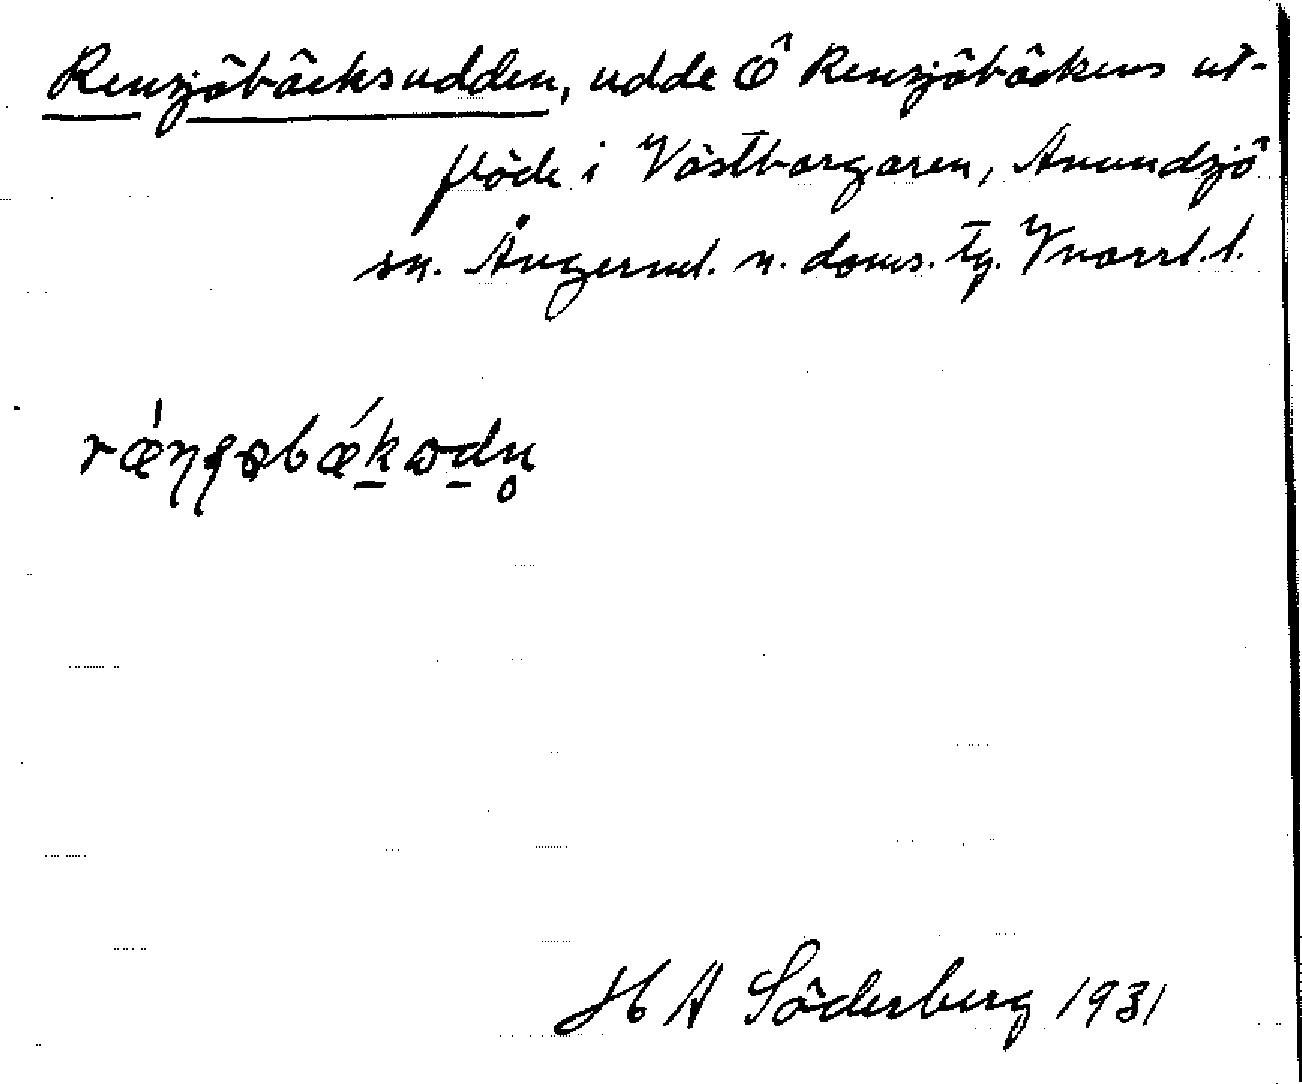 Rensjöbäcksudden, udde Ö Rensjöbäckens ut-
flöde i Västborgaren, Anundsjö
sn. Ångerml. n. doms. tg. Vnorrl. l.
H A Söderberg 1931